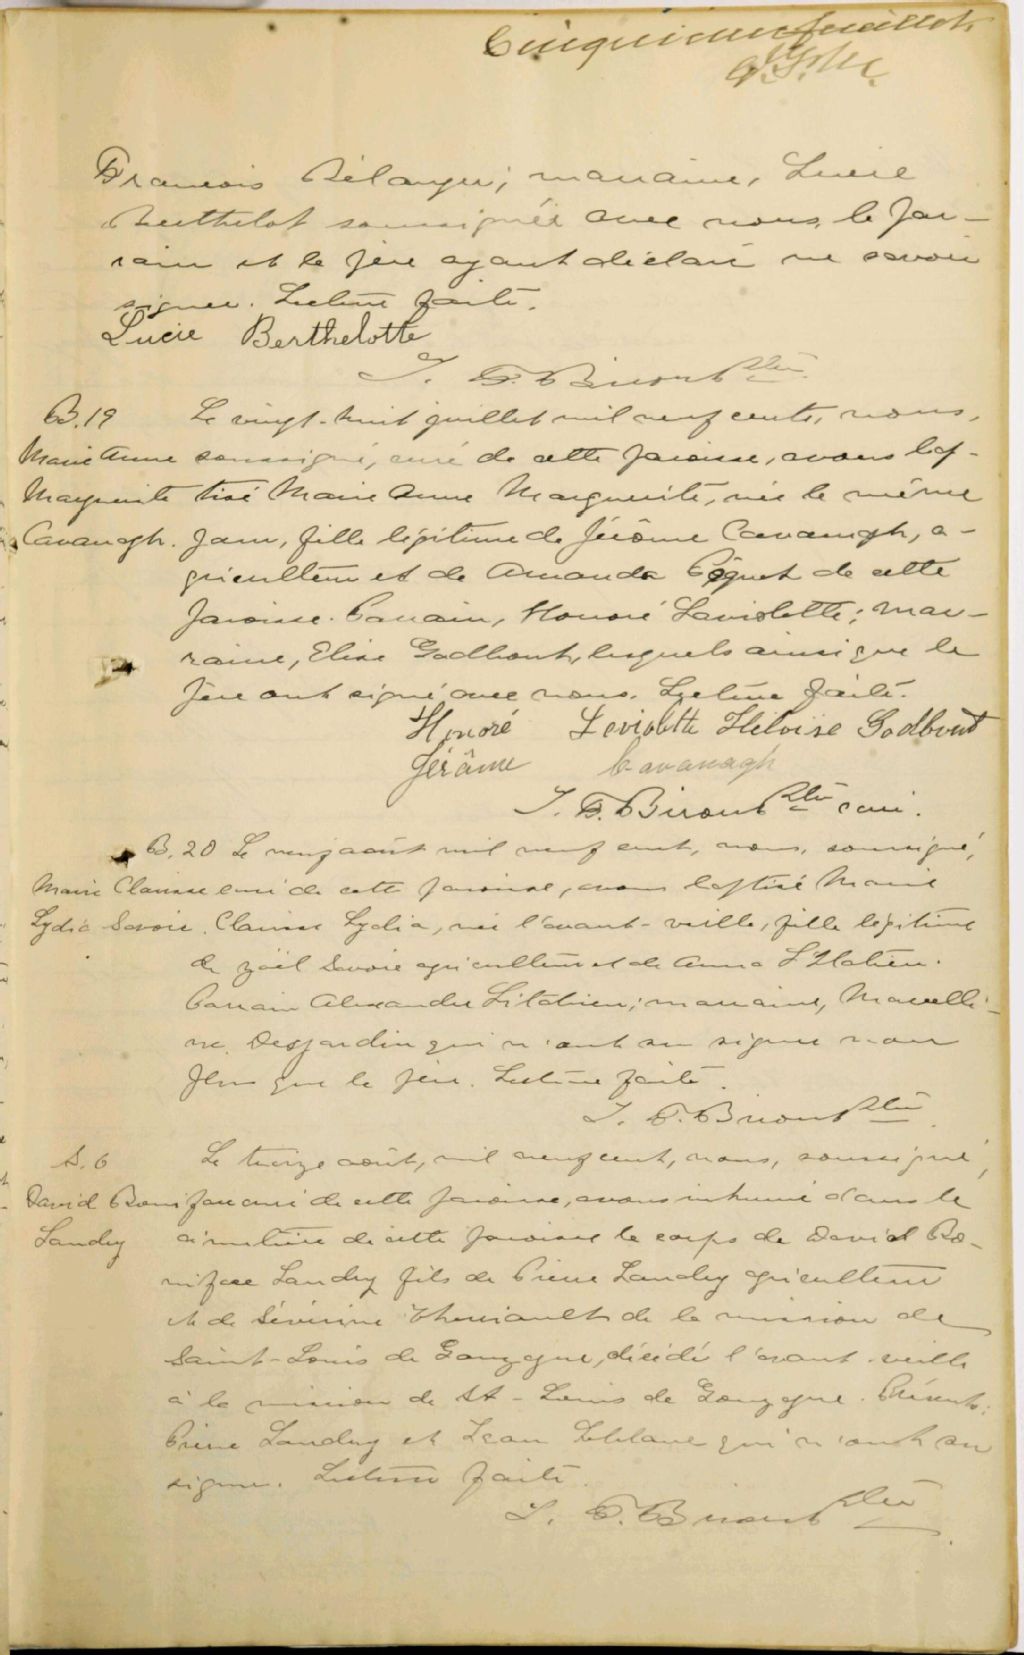 Cinquième feuillet
François Bélanger; marraine, Lucie
Berthelot soussignée avec nous, le par-
rain et le père ayant déclaré ne savoir
signer. Lecture faite.
Lucie Berthelotte
J. Biront Ptre
B. 19 Le vingt-huit juillet mil neuf cents, nous,
Marie Anne soussigné, curé de cette paroisse, avons bap-
Marguerite tisé Marie Anne Marguerite, née le même
Cavanagh. jour, fille légitime de Jérôme Cavanagh, a-
griculteur et de Amanda de cette
paroisse. Parrain, Honoré Laviolette; mar-
raine, Elise Godbout, lesquels ainsi que le
père ont signé avec nous. Lecture faite.
Honoré Leviolette Héloïse Godbout
Jérâme Cavanagh
J. Biront Ptre curé.
B. 20 Le août mil neuf cent, nous, soussigné,
Marie Clarisse curé de cette paroisse, avons baptisé Marie
Lydia Savoie. Clarisse Lydia, née l'avant-veille, fille légitime
de Savoie agriculteur et de Anna
Parrain Alexandre marraine, Marcelli-
ne Desjardin qui n'ont su signer non
plus que le père. Lecture faite.
J. Biront Ptre
S. 6 Le treize août, mil neuf cent, nous, soussigné,
David Boniface curé de cette paroisse, avons inhumé dans le
Landry cimetière de cette paroisse le corps de David Bo-
niface Landry fils de Pierre Landry agriculteur
et de Séverine Theriault de la mission de
Saint-Louis de Gonzague, décédé l'avant-veille
à la mission de St-Louis de Gonzague. Présents:
Pierre Landry et Jean Leblanc qui n'ont su
signer. Lecture faite.
J. Biront Ptre